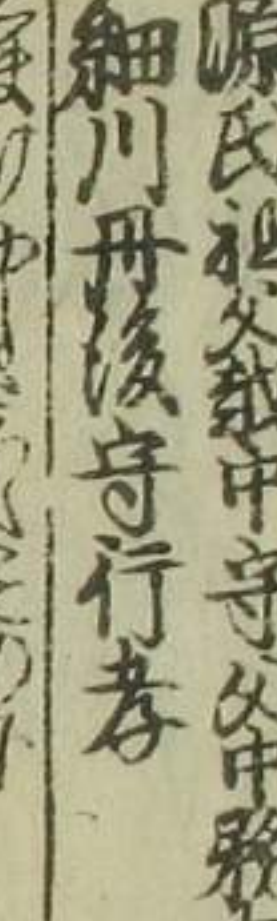 源氏祖父越中守父中務
細川丹後守行孝